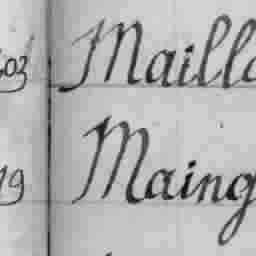 603 Mailla
19 Maing